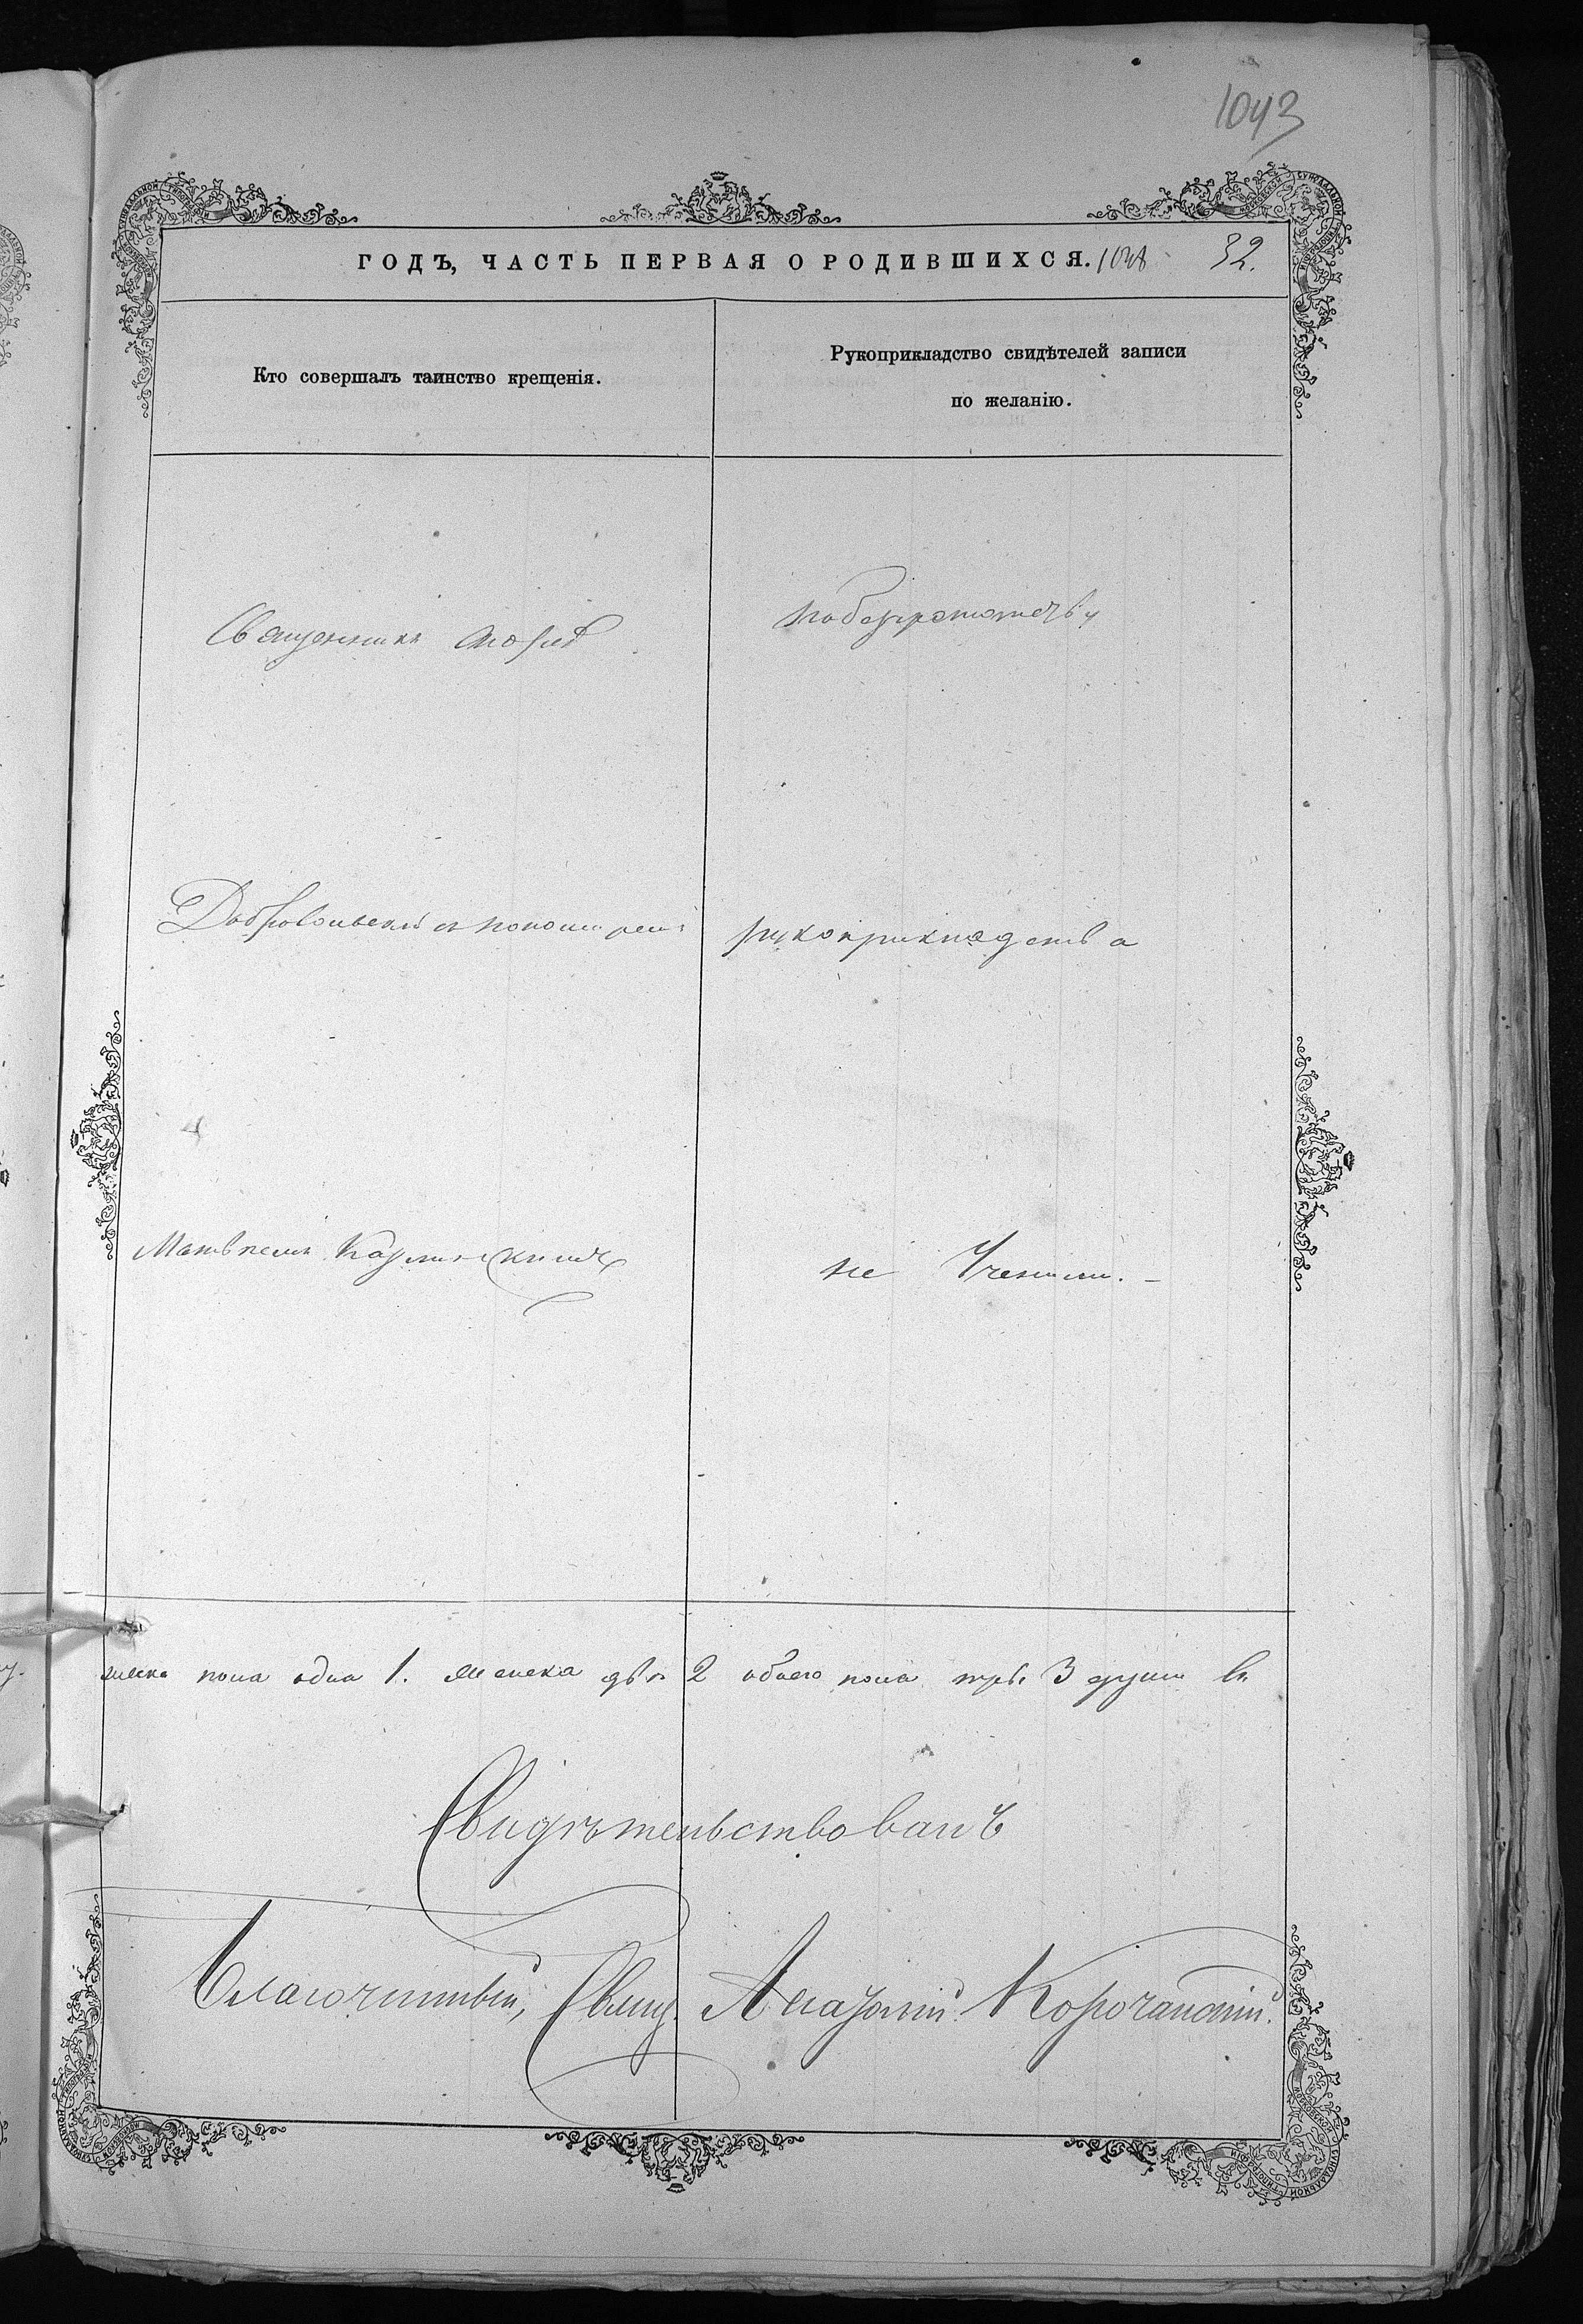 1043
ГОДЪ, ЧАСТЬ ПЕРВАЯ О РОДИВШИХСЯ. 32.
Кто совершалъ таинство крещенія.
Рукоприкладство свидѣтелей записи
по желанію.
Священникъ
побезграмотству
Добровольскій съ
рукоприкладства
Матвѣемъ
не Учинили. –
мужска пола одна 1. женска двѣ 2 обоего пола три 3 души въ
Свидѣтельствовалъ
Благочинный, Свящ. Корочанскій.